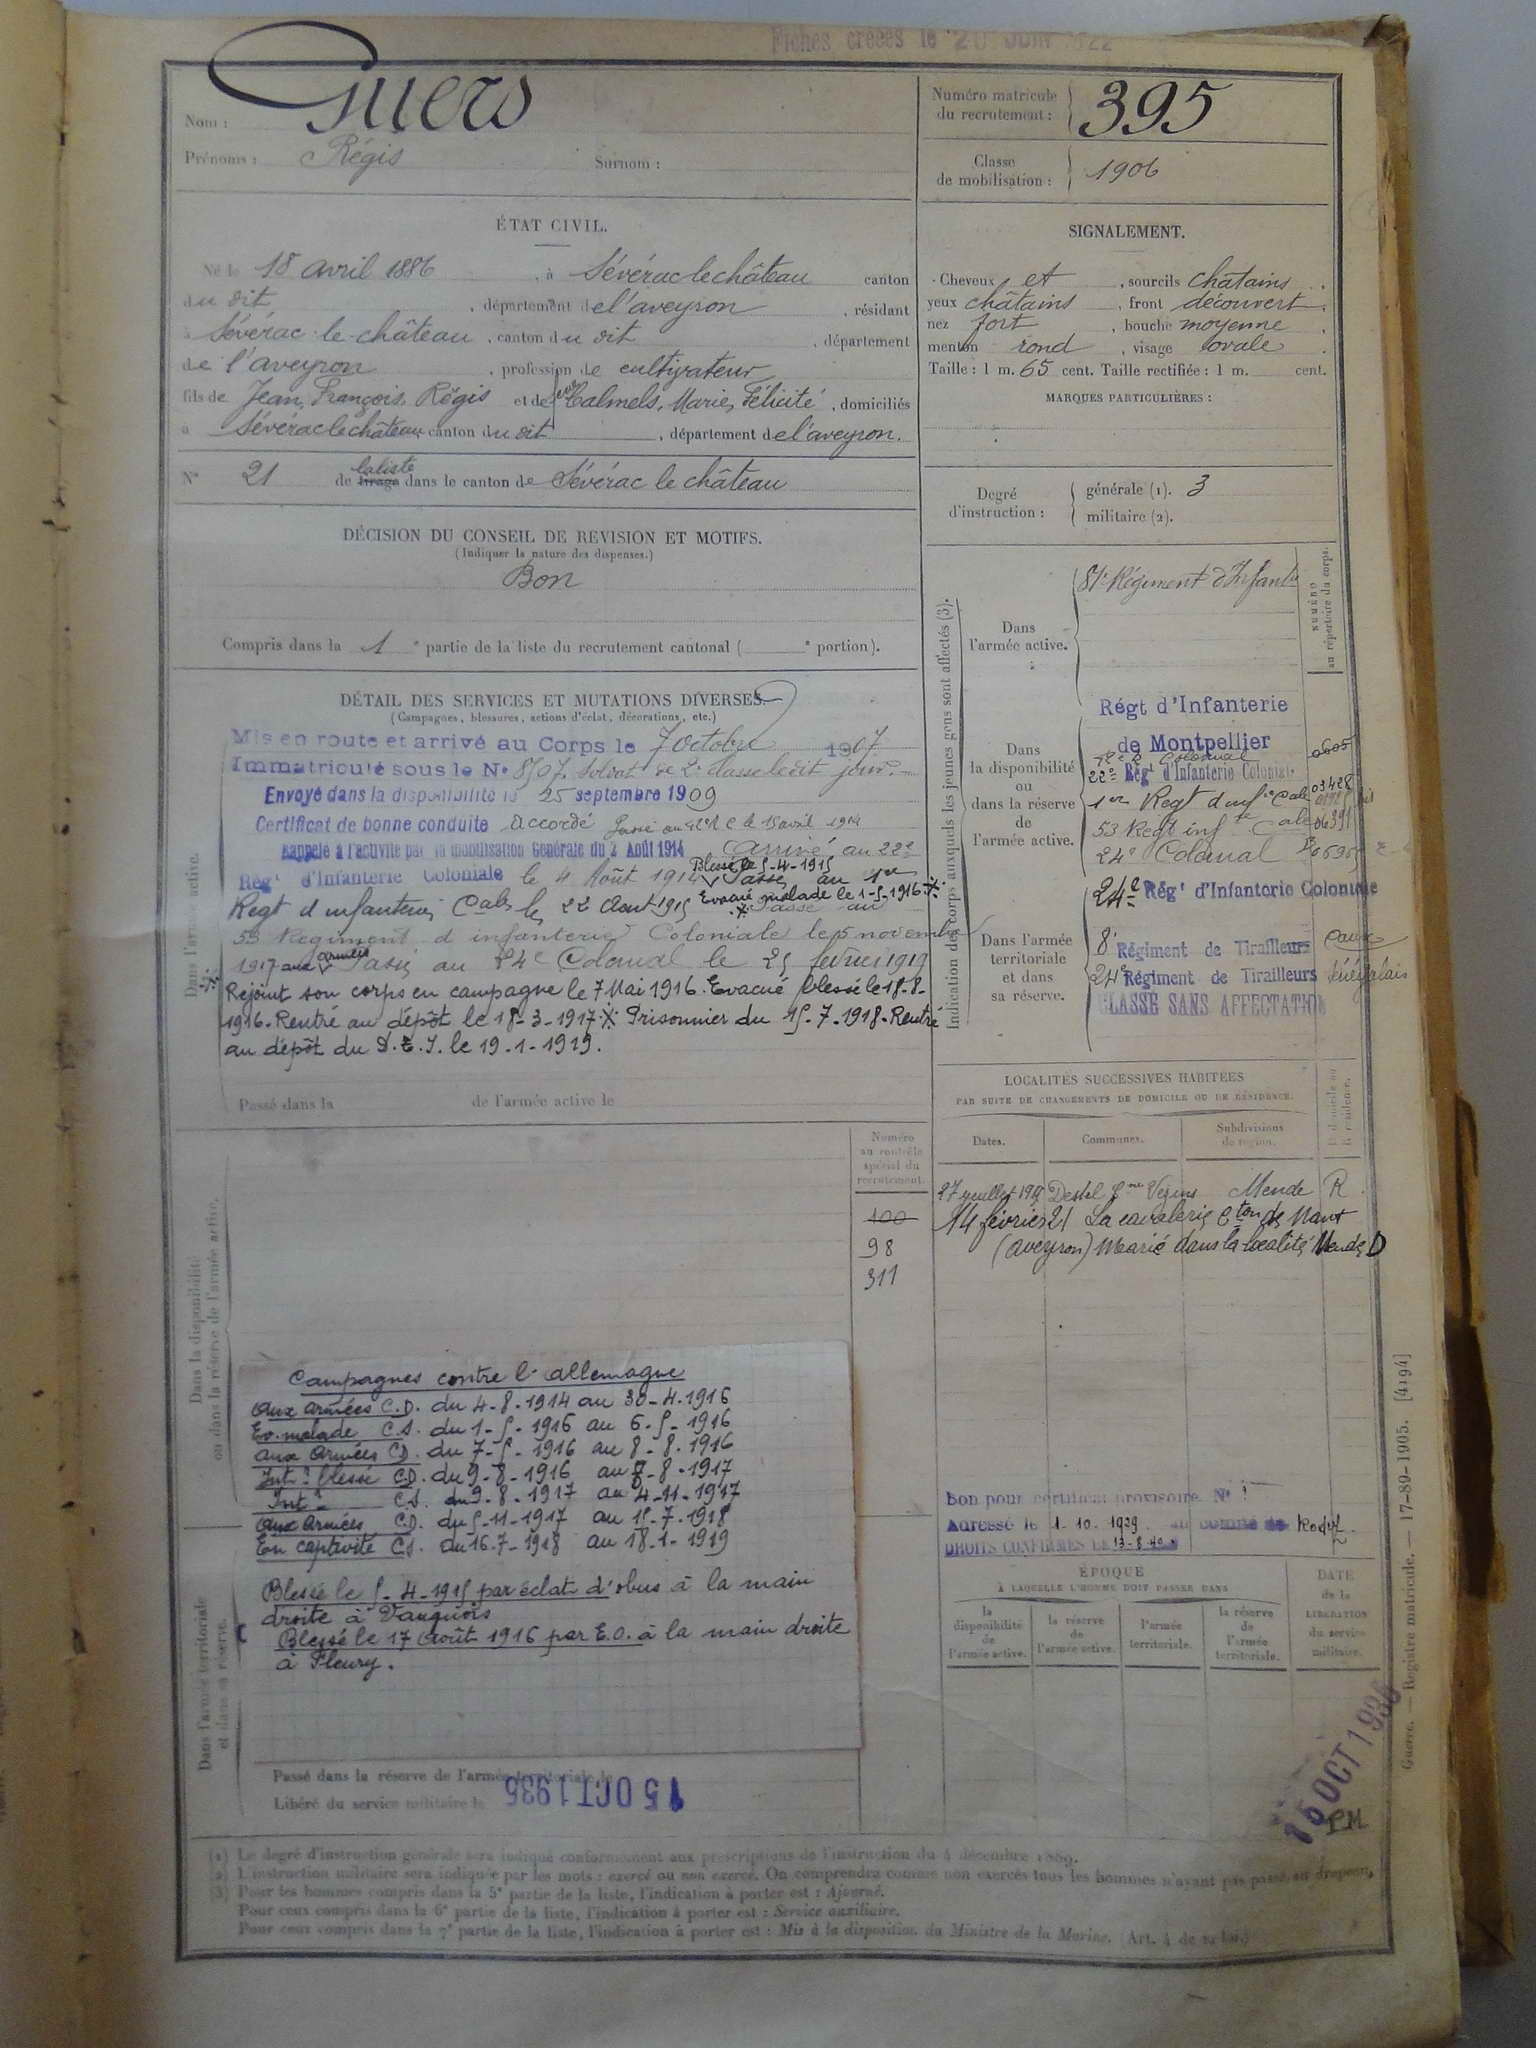 Fiches créées le 20 JUIN 1922
Nom : Guers
Prénoms : Régis Surnom :
Numéro matricule du recrutement : 395
Classe de mobilisation : 1906
ÉTAT CIVIL.
Né le 18 avril 1886, à Sévérac le château canton
du dit, département de l'aveyron, résidant
à Sévérac le château, canton du dit, département
de l'aveyron, profession de cultivateur
fils de Jean, François, Régis et de Calmels, Marie, Félicité, domiciliés
à Sévérac le château canton du dit, département de l'aveyron.
N° 21 de la liste tirage dans le canton de Sévérac le château
SIGNALEMENT.
Cheveux et, sourcils châtains
yeux châtains, front découvert
nez fort, bouche moyenne
menton rond, visage ovale
Taille : 1 m. 65 cent. Taille rectifiée : 1 m. cent.
MARQUES PARTICULIÈRES :
Degré d'instruction : générale (1). 3
militaire (2).
DÉCISION DU CONSEIL DE REVISION ET MOTIFS.
(Indiquer la nature des dispenses.)
Bon
Compris dans la 1e partie de la liste du recrutement cantonal ( e portion).
DÉTAIL DES SERVICES ET MUTATIONS DIVERSES.
(Campagnes, blessures, actions d'éclat, décorations, etc.)
Dans l'armée active.
Mis en route et arrivé au Corps le 7 octobre 1907
Immatriculé sous le N° 8707. Soldat de 2e classe le dit jour.
Envoyé dans la disponibilité le 25 septembre 1909
Certificat de bonne conduite accordé Passé au 22e R C le 15 avril 1914
Rappelé à l'activité par la mobilisation Générale du 2 Août 1914 Arrivé au 22e
Régt d'Infanterie Coloniale le 4 Août 1914 Blessé le 5-4-1915 Passé au 1er
Regt d'infanterie Cale le 22 Aout 1915 Evacué malade le 1-5-1916 Passé au
53 Régiment d'infanterie Coloniale le 5 novembre
1917 aux armées Passé au 24e Colonial le 25 fevrier 1919
Rejoint son corps en campagne le 7 Mai 1916. Evacué blessé le 18-8-
1916. Rentré au dépôt le 18-3-1917 Prisonnier du 15-7-1918. Rentré
au dépôt du D.E.I. le 19-1-1919.
Passé dans la de l'armée active le
Indication des corps auxquels les jeunes gens sont affectés (3).
NUMÉRO au répertoire du corps.
Dans l'armée active.
81e Régiment d'Infante
Dans la disponibilité ou dans la réserve de l'armée active.
Régt d'Infanterie
de Montpellier 0605
22e Régt d'Infanterie Coloniale 03428
1er Regt d'infie Cale
53 Regt infte Cale 06391
24e Colonial
Dans l'armée territoriale et dans sa réserve.
24e Régt d'Infanterie Coloniale
8e Régiment de Tirailleurs
24e Régiment de Tirailleurs Sénégalais
CLASSÉ SANS AFFECTATION
LOCALITÉS SUCCESSIVES HABITÉES
PAR SUITE DE CHANGEMENTS DE DOMICILE OU DE RÉSIDENCE.
Dates. Communes. Subdivisions de région. D. domicile ou R. résidence.
Mende R
14 février 21 La cavalerie Cton de Nant
(aveyron) Marié dans la localité Mende D
Numéro au contrôle spécial du recrutement.
100
98
311
Dans la disponibilité ou dans la réserve de l'armée active.
Campagnes contre l'allemagne
Aux armées C.D. du 4-8-1914 au 30-4-1916
Ev. malade C.S. du 1-5-1916 au 6-5-1916
aux armées C.D. du 7-5-1916 au 8-8-1916
Intr blessé C.D. du 9-8-1916 au 8-8-1917
Intr C.S. du 9-8-1917 au 4-11-1917
aux armées C.D. du 5-11-1917 au 15-7-1918
En captivité C.S. du 16-7-1918 au 18-1-1919
Blessé le 5-4-1915 par éclat d'obus à la main
droite à Vauquois
Blessé le 17 Août 1916 par E.O. à la main droite
à Fleury.
Dans l'armée territoriale et dans sa réserve.
Passé dans la réserve de l'armée territoriale le
Libéré du service militaire le 15 OCT 1935
Bon pour certificat provisoire N°
Adressé le 1-10-1929 au comité de Rodez
DROITS CONFIRMÉS LE 13-8-40
ÉPOQUE
À LAQUELLE L'HOMME DOIT PASSER DANS
la disponibilité de l'armée active. la réserve de l'armée active. l'armée territoriale. la réserve de l'armée territoriale.
DATE de la LIBÉRATION du service militaire.
15 OCT 1935
P.M.
Guerre. — Registre matricule. — 17-89-1905. [4194]
(1) Le degré d'instruction générale sera indiqué conformément aux prescriptions de l'instruction du 4 décembre 1889.
(2) L'instruction militaire sera indiquée par les mots : exercé ou non exercé. On comprendra comme non exercés tous les hommes n'ayant pas passé au drapeau,
(3) Pour les hommes compris dans la 5e partie de la liste, l'indication à porter est : Ajourné.
Pour ceux compris dans la 6e partie de la liste, l'indication à porter est : Service auxiliaire.
Pour ceux compris dans la 7e partie de la liste, l'indication à porter est : Mis à la disposition du Ministre de la Marine. (Art. 4 de la loi.)